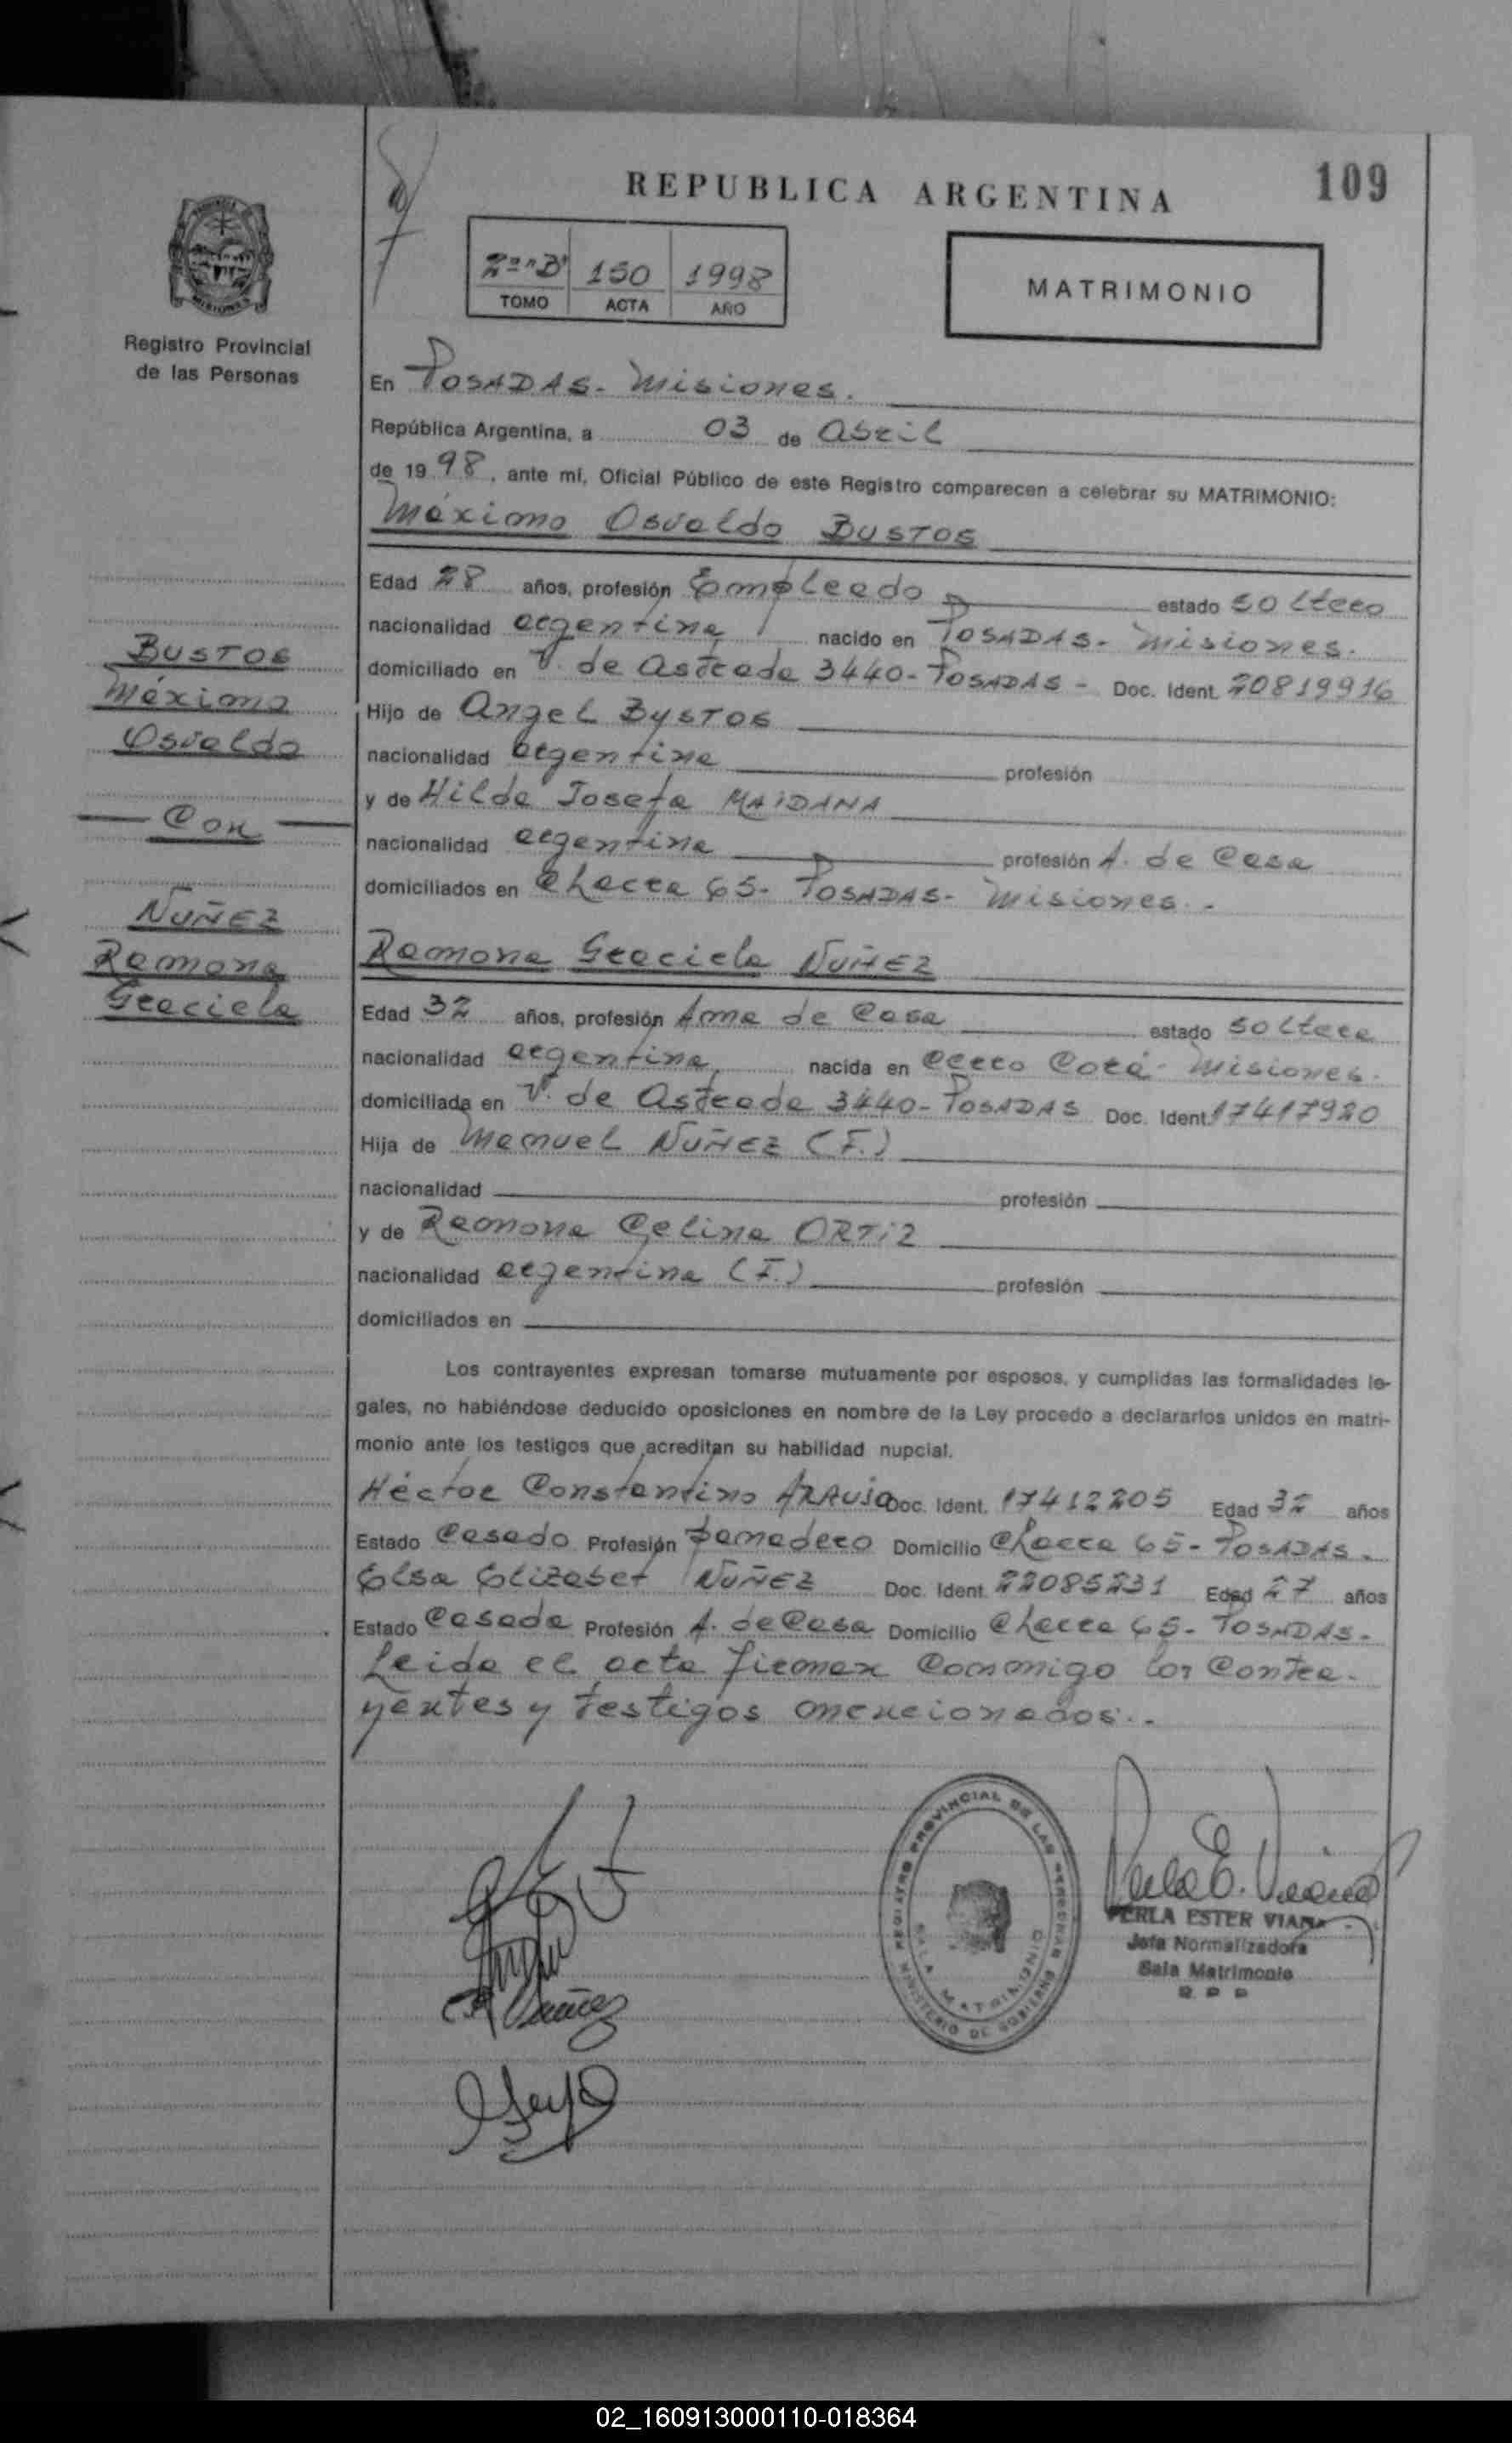 109
REPUBLICA ARGENTINA
2º "B" 150 1998
TOMO ACTA AÑO
MATRIMONIO
Registro Provincial
de las Personas
En POSADAS - Misiones.
República Argentina, a 03 de Abril
de 19 98, ante mí, Oficial Público de este Registro comparecen a celebrar su MATRIMONIO:
Máximo Osvaldo BUSTOS
Edad 28 años, profesión Empleado estado soltero
nacionalidad argentina nacido en POSADAS - Misiones.
domiciliado en V. de Astrada 3440 - POSADAS - Doc. Ident. 20819916
Hijo de Angel BUSTOS
nacionalidad argentina profesión
y de Hilda Josefa MAIDANA
nacionalidad argentina profesión A. de Casa
domiciliados en Chacra 65 - POSADAS - Misiones. -
BUSTOS
Máximo
Osvaldo
Con
NUÑEZ
Ramona
Graciela
Ramona Graciela NUÑEZ
Edad 32 años, profesión Ama de Casa estado soltera
nacionalidad argentina nacida en Cerro Corá - Misiones.
domiciliada en V. de Astrada 3440 - POSADAS Doc. Ident. 17417920
Hija de Manuel NUÑEZ (F.)
nacionalidad profesión
y de Ramona Celina ORTIZ
nacionalidad argentina (F.) profesión
domiciliados en
Los contrayentes expresan tomarse mutuamente por esposos, y cumplidas las formalidades le-
gales, no habiéndose deducido oposiciones en nombre de la Ley procedo a declararlos unidos en matri-
monio ante los testigos que acreditan su habilidad nupcial.
Héctor Constantino ARAUJO Doc. Ident. 17412205 Edad 32 años
Estado Casado Profesión Panadero Domicilio Chacra 65 - POSADAS.
Elsa Elizabet NUÑEZ Doc. Ident. 22085231 Edad 27 años
Estado Casada Profesión A. de Casa Domicilio Chacra 65 - POSADAS -
Leida el acta firman conmigo los contra-
yentes y testigos mencionados. -
REGISTRO PROVINCIAL DE LAS PERSONAS
SALA MATRIMONIO
MINISTERIO DE GOBIERNO
Perla E. Viana
PERLA ESTER VIANA
Jefa Normalizadora
Sala Matrimonio
R P P
Nuñez
02_160913000110-018364